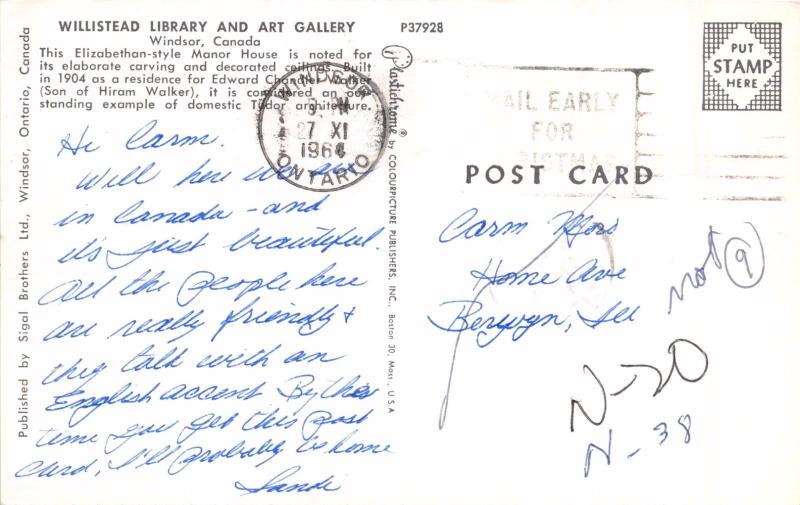 WILLISTEAD LIBRARY AND ART GALLERY
Windsor, Canada
This Elizabethan-style Manor House is noted for
its elaborate carving and decorated ceilings. Built
in 1904 as a residence for Edward Chandler Walker
(Son of Hiram Walker), it is considered an out-
standing example of domestic Tudor architecture.
P37928
Published by Sigal Brothers Ltd., Windsor, Ontario, Canada
Plastichrome® by COLOURPICTURE PUBLISHERS, INC., Boston 30, Mass., U.S.A
WINDSOR
PM
27 XI
1964
ONTARIO
MAIL EARLY
FOR
CHRISTMAS
PUT
STAMP
HERE
POST CARD
Hi Carm.
Will here we are
in Canada - and
its just beautiful.
All the people here
are really friendly &
they talk with an
English accent By the
time you get this post
card, I'll probably be home
Sandi
Carm
Home Ave
Berwyn, Ill
not 9
N-20
N-38